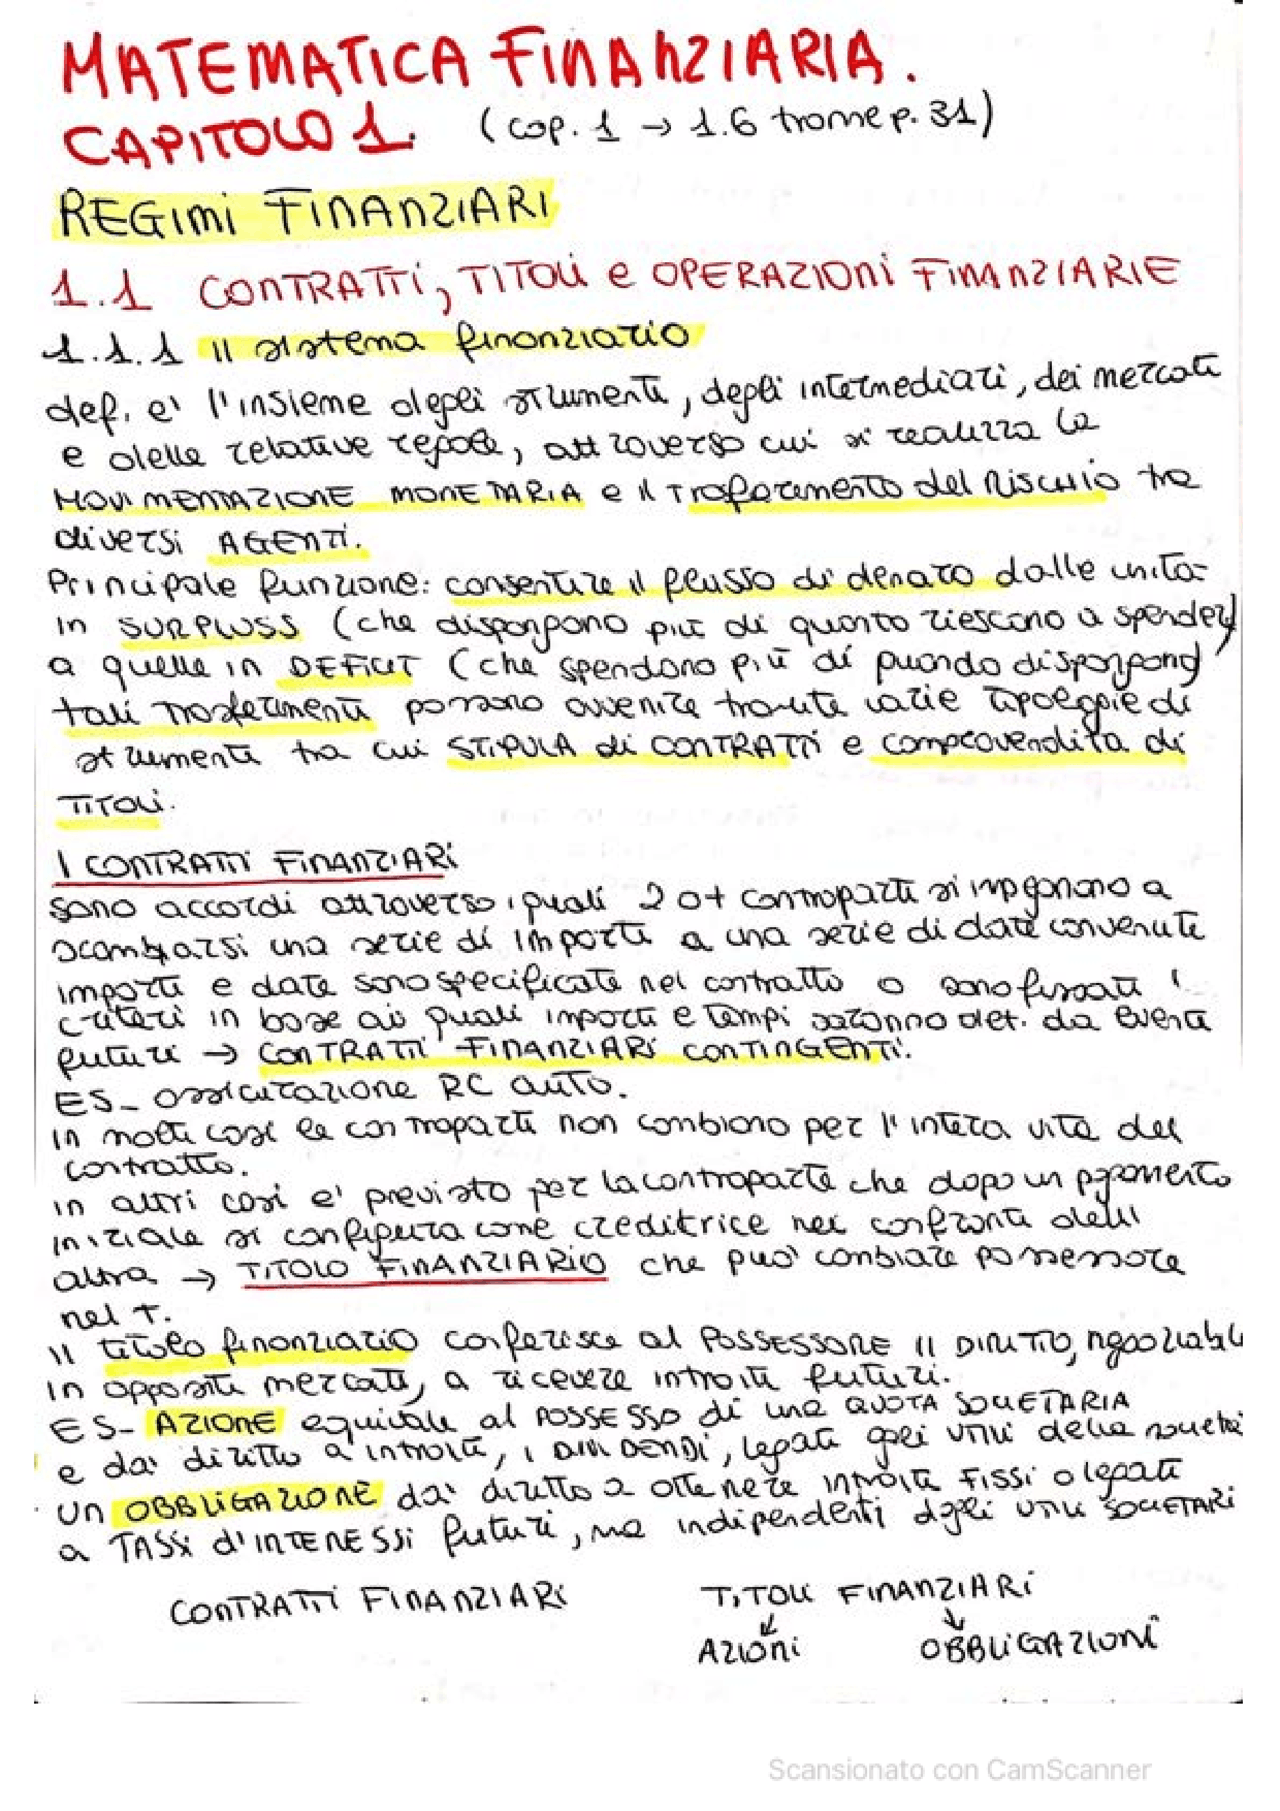 MATEMATICA FINANZIARIA.
CAPITOLO 1. (cap. 1 → 1.6 tranne p. 31)
REGIMI FINANZIARI
1.1 CONTRATTI, TITOLI e OPERAZIONI FINANZIARIE
1.1.1 Il sistema finanziario
def. e' l'insieme degli strumenti, degli intermediari, dei mercati
e delle relative regole, attraverso cui si realizza la
MOVIMENTAZIONE MONETARIA e il Trasferimento del Rischio tra
diversi AGENTI.
Principale funzione: consentire il flusso di denaro dalle unità
in SURPLUSS (che dispongono più di quanto riescono a spender)
a quelle in DEFICIT (che spendono più di quando dispongono)
tali trasferimenti possono avvenire tramite varie tipologie di
strumenti tra cui STIPULA di CONTRATTI e compravendita di
TITOLI.
I CONTRATTI FINANZIARI
sono accordi attraverso i quali 2 o + controparti si impegnano a
scambiarsi una serie di importi a una serie di date convenute
importi e date sono specificate nel contratto o sono fissati i
criteri in base ai quali importi e tempi saranno det. da eventi
futuri → CONTRATTI FINANZIARI CONTINGENTI.
ES_ assicurazione RC auto.
in molti casi le controparti non cambiano per l'intera vita del
contratto.
in altri casi e' previsto per la controparte che dopo un pagamento
iniziale si configura come creditrice nei confronti dell'
altra → TITOLO FINANZIARIO che può cambiare possessore
nel t.
Il titolo finanziario conferisce al POSSESSORE il DIRITTO, negoziabile
in appositi mercati, a ricevere introiti futuri.
ES_ AZIONE equivale al POSSESSO di una QUOTA SOCIETARIA
e da' diritto a introiti, i DIVIDENDI, legati agli utili della società
· UN OBBLIGAZIONE da' diritto a ottenere introiti FISSI o legati
a TASSI d'INTERESSI futuri, ma indipendenti dagli utili SOCIETARI
CONTRATTI FINANZIARI TITOLI FINANZIARI
AZIONI OBBLIGAZIONI
Scansionato con CamScanner